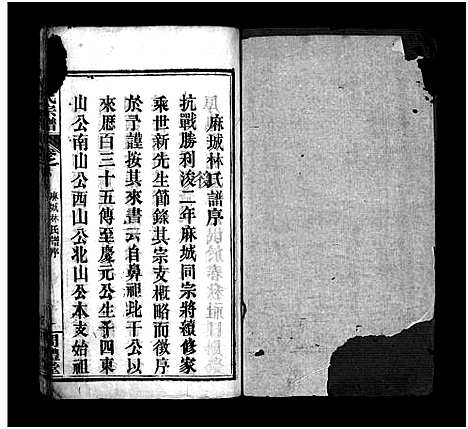 麻城林氏譜序
抗戰勝利後二年麻城同宗將續修家
乘世新先生節錄其宗支概略而徵序
於予謹按其來書云自鼻祖比干公以
來歷百三十五傳至慶元公生子四東
山公南山公西山公北山公本支始祖
氏宗譜
麻城林氏譜序